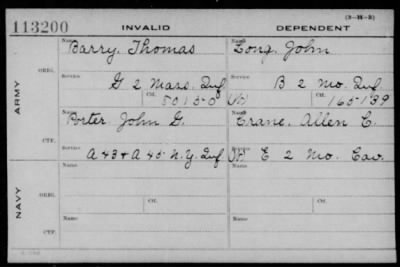 (3-16-3)
113200 INVALID DEPENDENT
Name Barry, Thomas Name Long, John
ORIG.
Service G 2 Mass. Inf Service B 2 Mo. Inf.
Ctf. 5013-0 Ctf. 165-139
ARMY
Name Porter, John G. Name Crane, Allen C.
CTF.
Service A 43 + A 45 N.Y. Inf Service E 2 Mo. Cav.
NAVY
Name Name
ORIG.
Service Ctf. Service Ctf.
Name Name
CTF.
Service Service